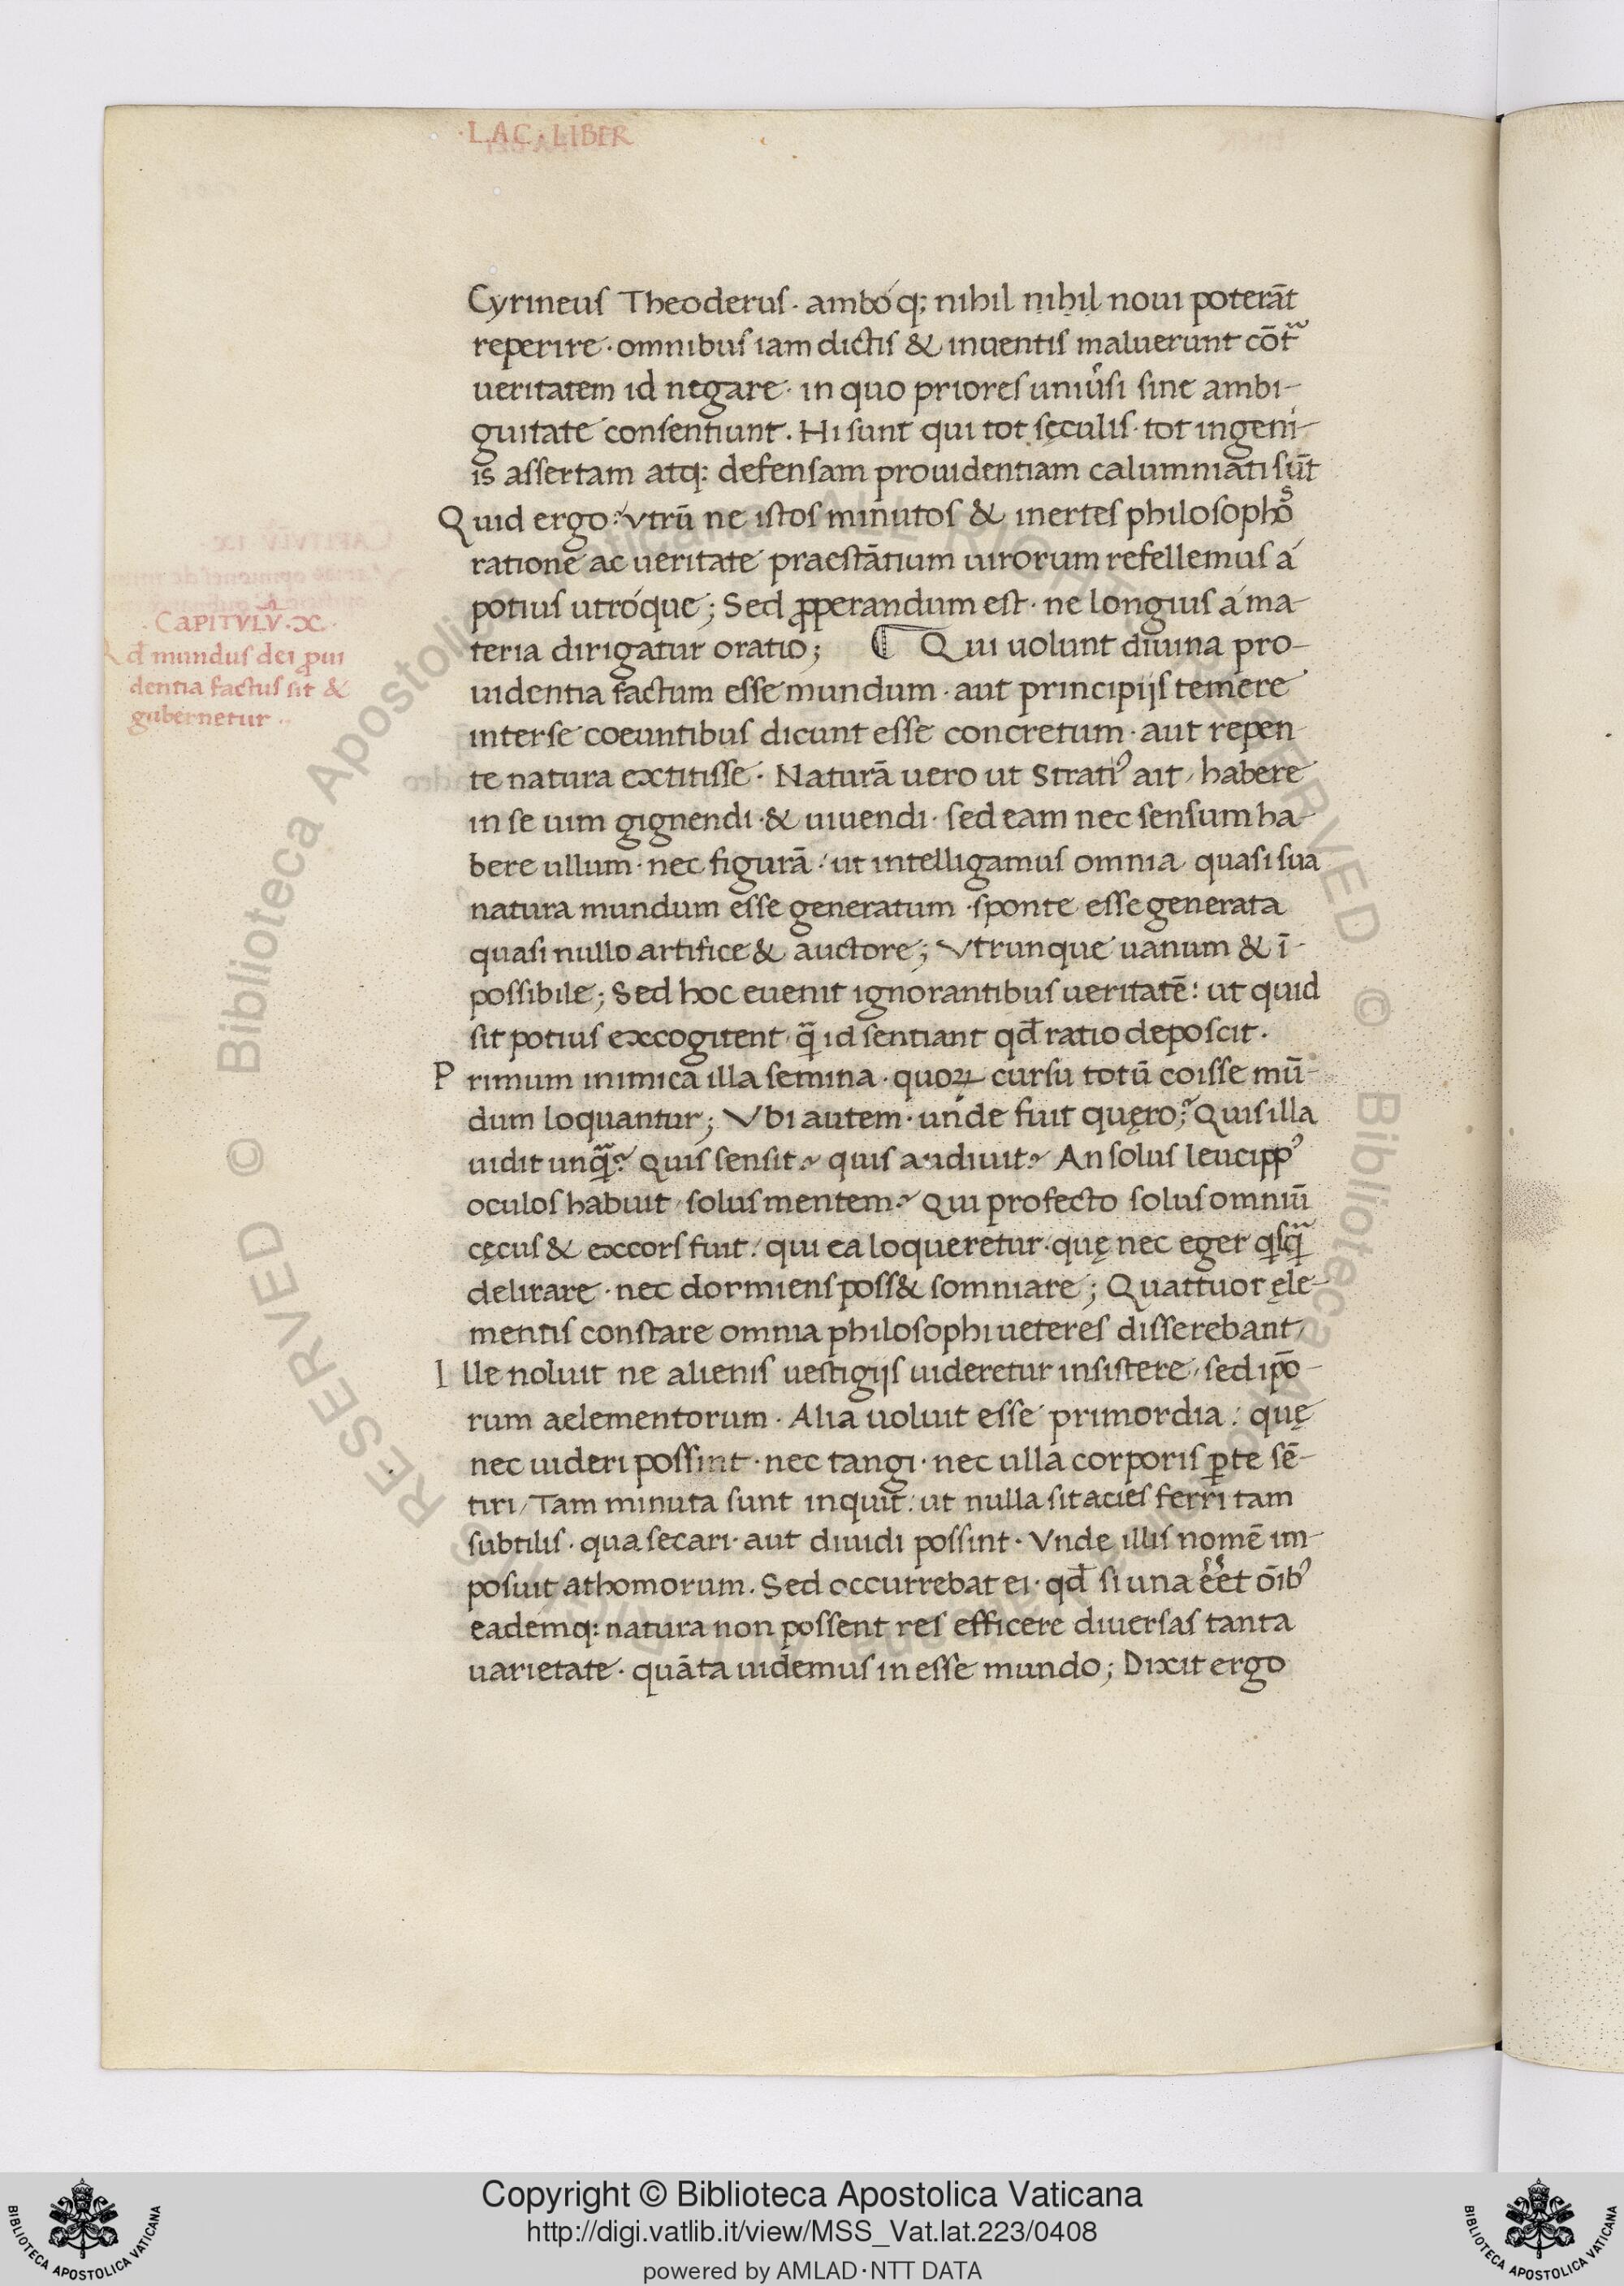 ·LAC·LIBER
Cyrineus Theoderus· amboq; nihil nihil noui poterāt
reperire· omnibus iam dictis & inuentis maluerunt cōt
ueritatem id negare· in quo priores uniuersi sine ambi-
guitate consentiunt. Hi sunt qui tot sęculis· tot ingeni-
is assertam atq: defensam prouidentiam calumniati sūt
Quid ergo? vtrū ne istos minutos & inertes philosophos
ratione ac ueritate praestātium uirorum refellemus a
potius utroque; Sed ꝓperandum est· ne longius a ma-
teria dirigatur oratio; ¶ Qui uolunt diuina pro-
·CAPITVLV̄·X·
Qđ mundus dei ꝓui
dentia factus sit &
gubernetur··
uidentia factum esse mundum· aut principijs temere
interse coeuntibus dicunt esse concretum· aut repen-
te natura extitisse· Naturā uero ut Stratiꝰ ait, habere
in se uim gignendi·& uiuendi· sed eam nec sensum ha-
bere ullum· nec figurā: ut intelligamus omnia quasi sua
natura mundum esse generatum ·sponte esse generata
quasi nullo artifice & auctore; Vtrunque uanum & ī-
possibile; Sed hoc euenit ignorantibus ueritatē: ut quid
sit potius excogitent· q̄ id sentiant qđ ratio deposcit.
Primum inimica illa semina· quoꝝ cursu totū coisse mū-
dum loquantur; Vbi autem· unde fuit quęro;? Quis illa
uidit unq̄? Quis sensit? quis audiuit? An solus leucippꝰ
oculos habuit, solus mentem? Qui profecto solus omniū
cęcus & excors fuit: qui ea loqueretur· quę nec eger qsq̄
delirare· nec dormiens poss& somniare; Quattuor ęle-
mentis constare omnia philosophi ueteres disserebant,
Ille noluit ne alienis uestigijs uideretur insistere, sed ipō-
rum aelementorum· Alia uoluit esse primordia: quę
nec uideri possint· nec tangi· nec ulla corporis ꝑte sē-
tiri, Tam minuta sunt inquit: ut nulla sit acies ferri tam
subtilis· qua secari· aut diuidi possint· Vnde illis nomē im-
posuit athomorum. Sed occurrebat ei· qđ si una eet oībꝰ
eademq: natura non possent res efficere diuersas tanta
uarietate· quāta uidemus in esse mundo; Dixit ergo
Copyright © Biblioteca Apostolica Vaticana
http://digi.vatlib.it/view/MSS_Vat.lat.223/0408
powered by AMLAD·NTT DATA
BIBLIOTECA APOSTOLICA VATICANA
BIBLIOTECA APOSTOLICA VATICANA